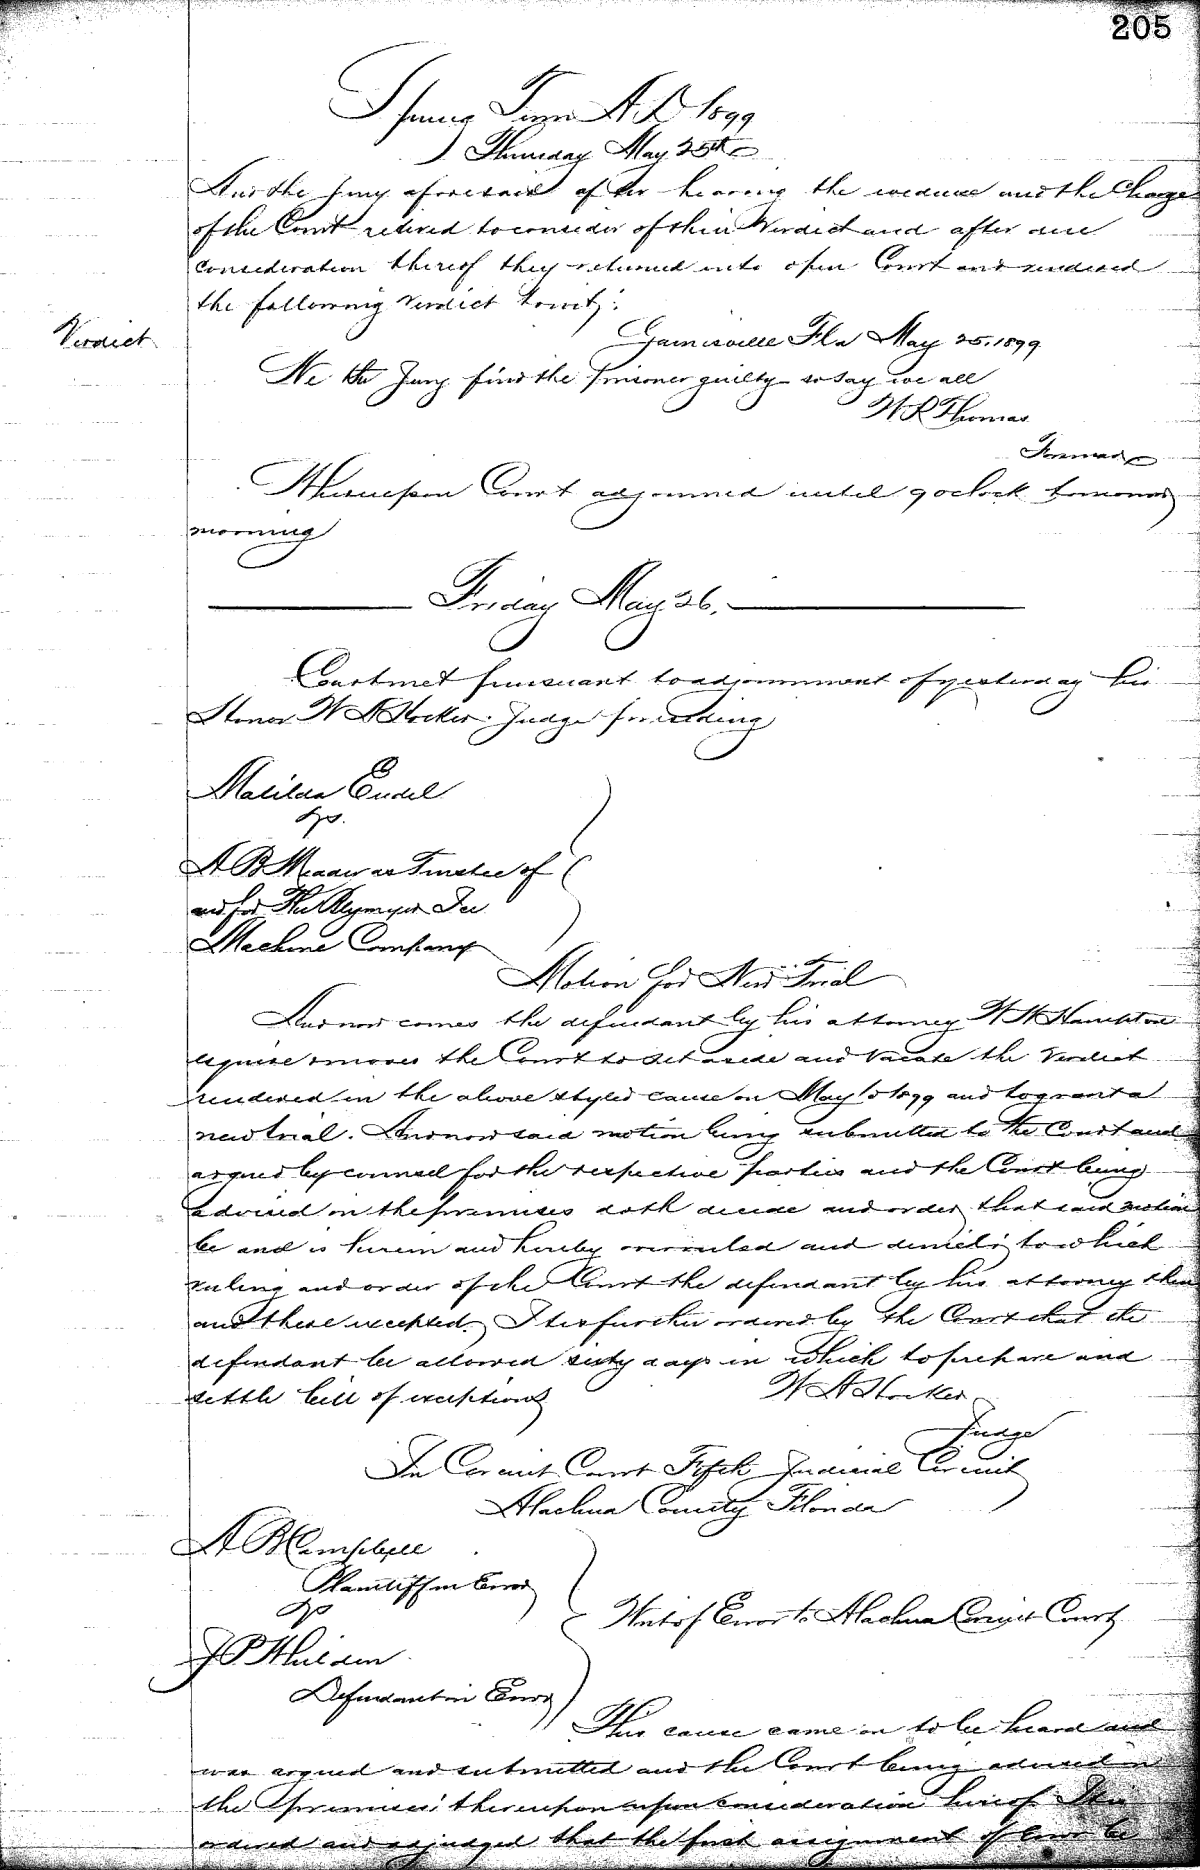 205
Spring Term A.D. 1899
Thursday May 25th
And the Jury aforesaid after hearing the evidence and the Charge
of the Court retired to consider of their Verdict and after due
consideration thereof they returned into open Court and rendered
the following Verdict towit:
Verdict
Gainesville Fla May 25, 1899
We the Jury find the Prisoner guilty so say we all
W R Thomas
Foreman
Whereupon Court adjourned until 9 oclock tomorrow
morning
Friday May 26.
Court met pursuant to adjournment of yesterday his
Honor W A Hocker Judge presiding
Matilda Endel
vs.
A B as Trustee of
and for The Ice
Machine Company
Motion for New Trial
And now comes the defendant by his attorney W W Hampton
esquire & moves the Court to set aside and vacate the Verdict
rendered in the above styled cause on May 1899 and to grant a
new trial. And now said motion being submitted to the Court and
argued by counsel for the respective parties and the Court being
advised in the premises doth decide and order that said motion
be and is herein and hereby overruled and denied; to which
ruling and order of the Court the defendant by his attorney then
and there excepted. It is further ordered by the Court that the
defendant be allowed sixty days in which to prepare and
settle bill of exceptions
W A Hocker
Judge
In Circuit Court Fifth Judicial Circuit
Alachua County Florida
A B Campbell
Plaintiff in Error
vs
J P
Defendant in Error
Writ of Error to Alachua Court
This cause came on to be heard and
was argued and submitted and the Court being advised in
the premises: thereupon upon consideration hereof It is
ordered and adjudged that the first assignment of Error be